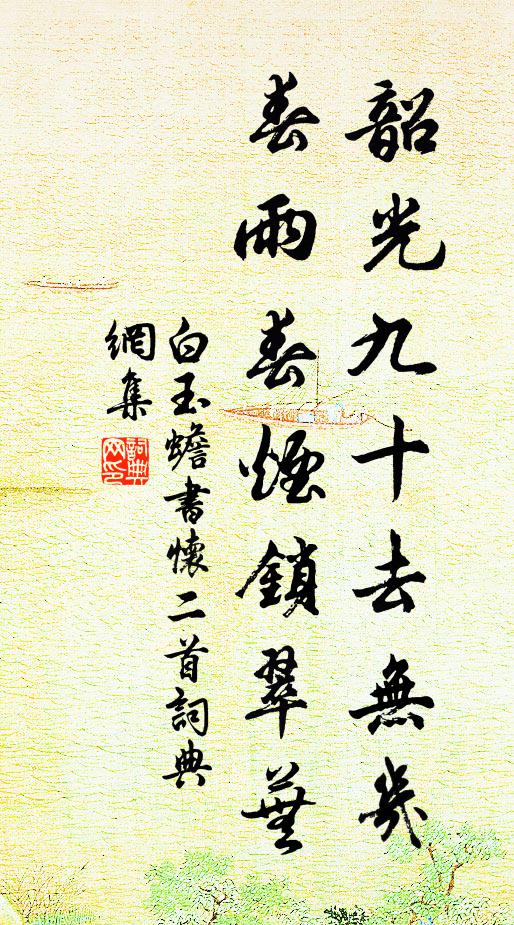 韶光九十去無幾
春雨春煙鎖翠蕪
白玉蟾書懷二首詞典
網集
詞典
网印